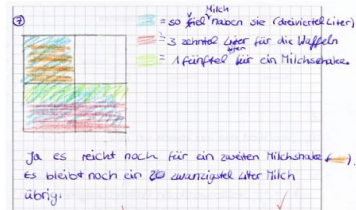 ⑦
Milch
= so viel haben sie (dreiviertel Liter)
= 3 zehntel Liter für die Waffeln
= 1 fünftel für ein Milchshake.
Ja es reicht noch für ein zweiten Milchshake ( ).
Es bleibt noch ein zwanzigstel Liter Milch
übrig.